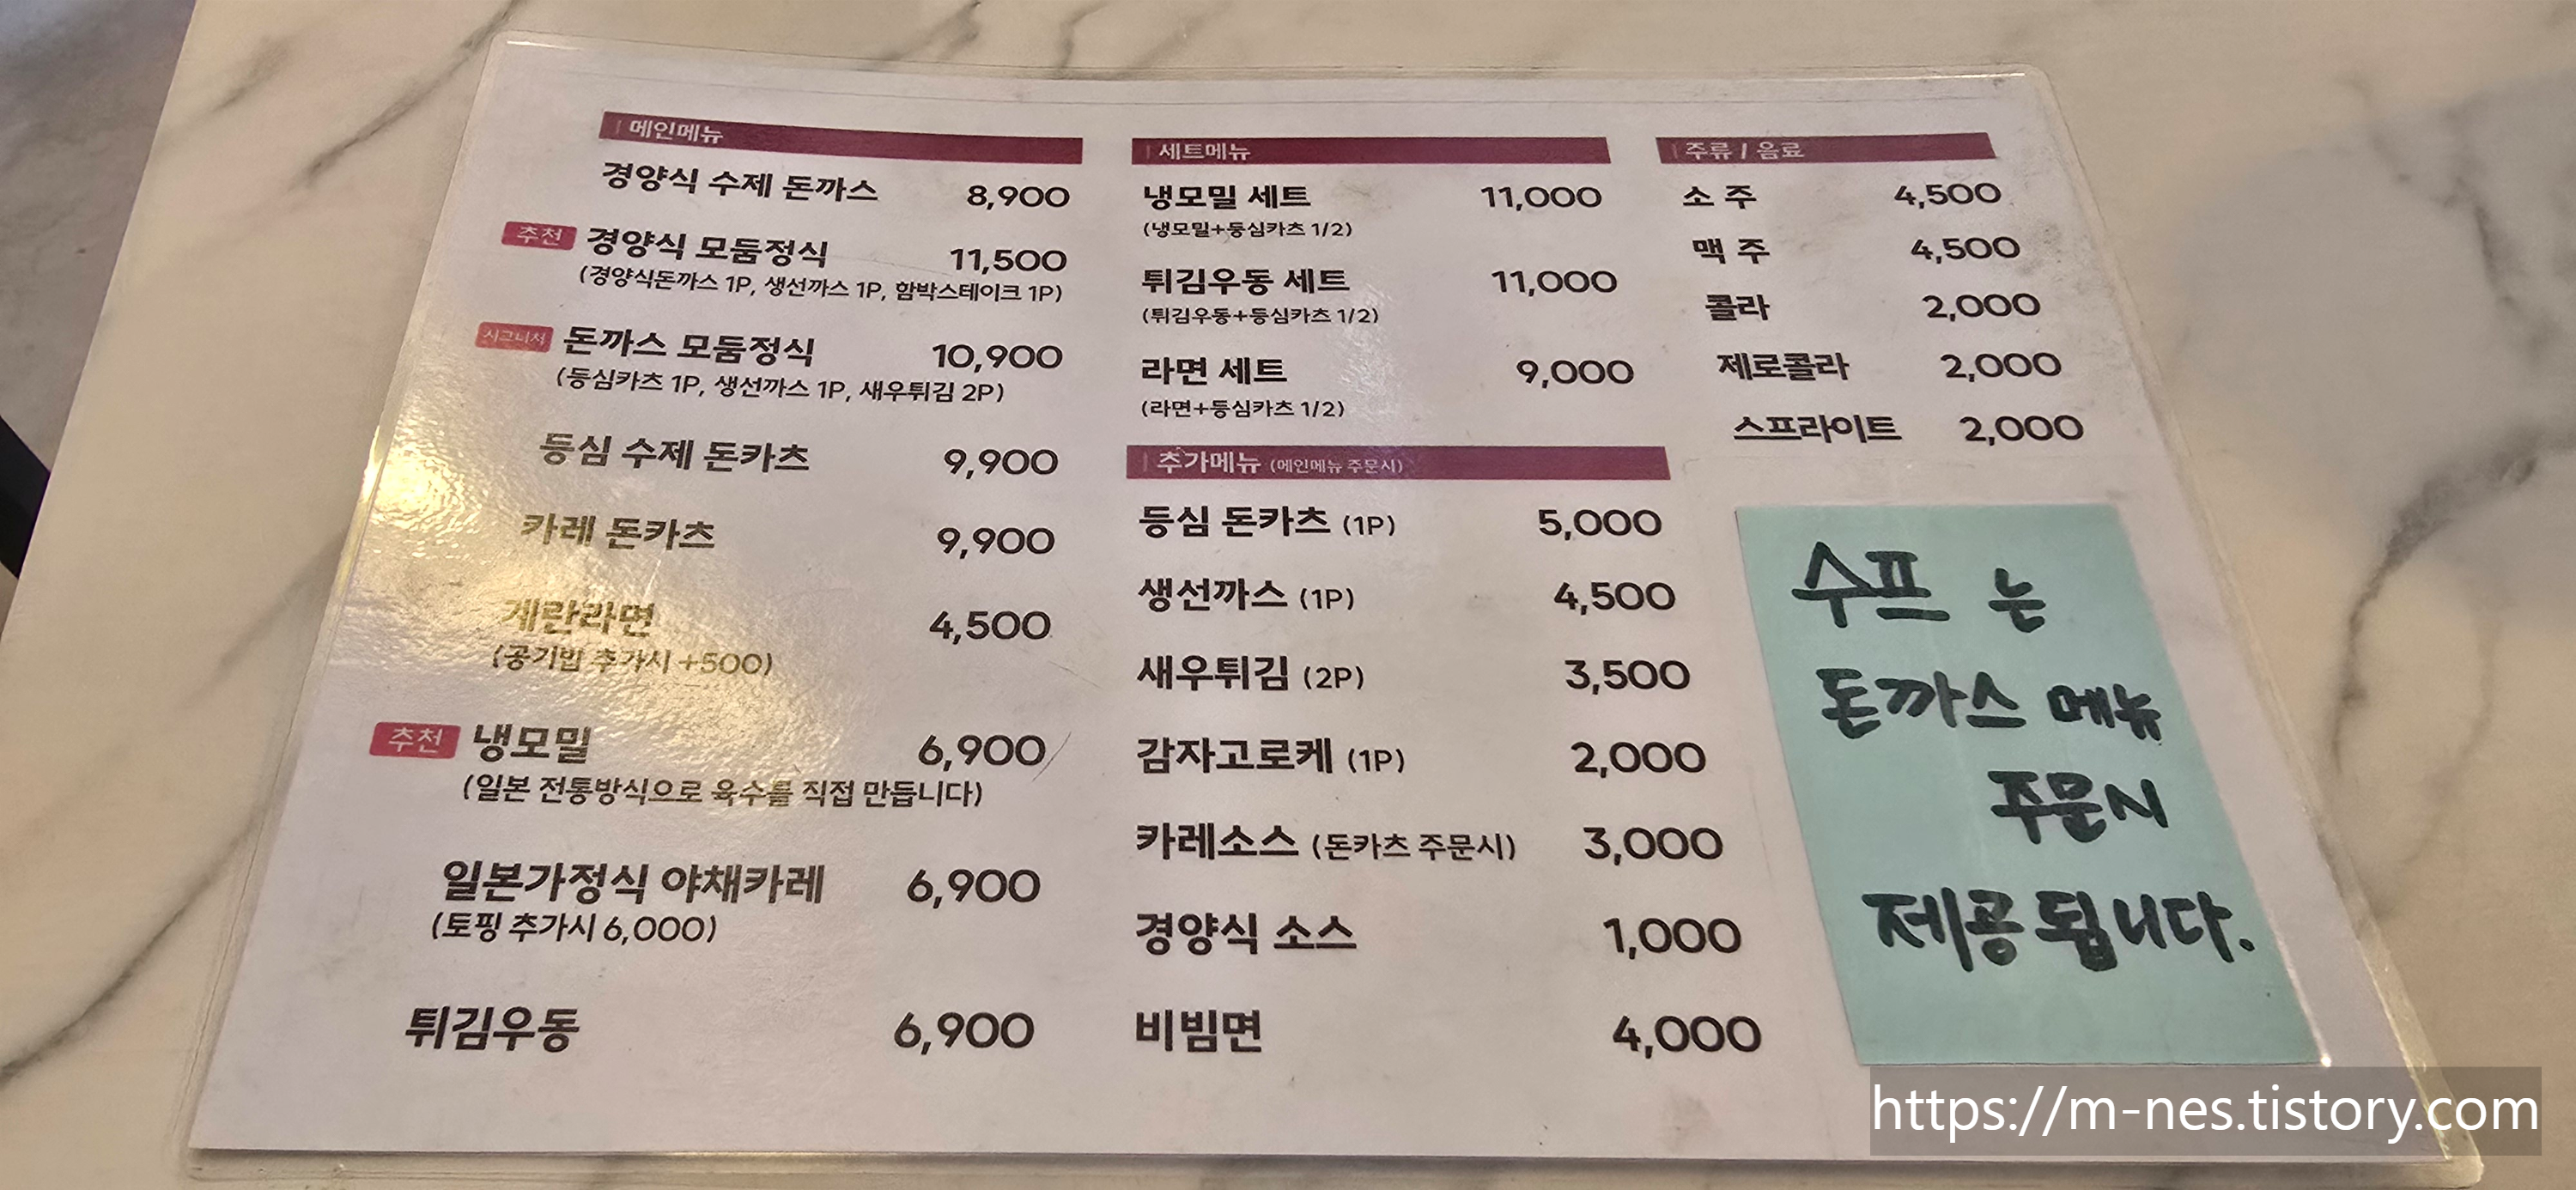 메인메뉴
경양식 수제 돈까스 8,900
추천 경양식 모둠정식 11,500
(경양식돈까스 1P, 생선까스 1P, 함박스테이크 1P)
시그니처 돈까스 모둠정식 10,900
(등심카츠 1P, 생선까스 1P, 새우튀김 2P)
등심 수제 돈카츠 9,900
카레 돈카츠 9,900
계란라면 4,500
(공기밥 추가시 +500)
추천 냉모밀 6,900
(일본 전통방식으로 육수를 직접 만듭니다)
일본가정식 야채카레 6,900
(토핑 추가시 6,000)
튀김우동 6,900
세트메뉴
냉모밀 세트 11,000
(냉모밀+등심카츠 1/2)
튀김우동 세트 11,000
(튀김우동+등심카츠 1/2)
라면 세트 9,000
(라면+등심카츠 1/2)
추가메뉴 (메인메뉴 주문시)
등심 돈카츠 (1P) 5,000
생선까스 (1P) 4,500
새우튀김 (2P) 3,500
감자고로케 (1P) 2,000
카레소스 (돈카츠 주문시) 3,000
경양식 소스 1,000
비빔면 4,000
주류 / 음료
소 주 4,500
맥 주 4,500
콜라 2,000
제로콜라 2,000
스프라이트 2,000
수프 는
돈까스 메뉴
주문시
제공됩니다.
https://m-nes.tistory.com